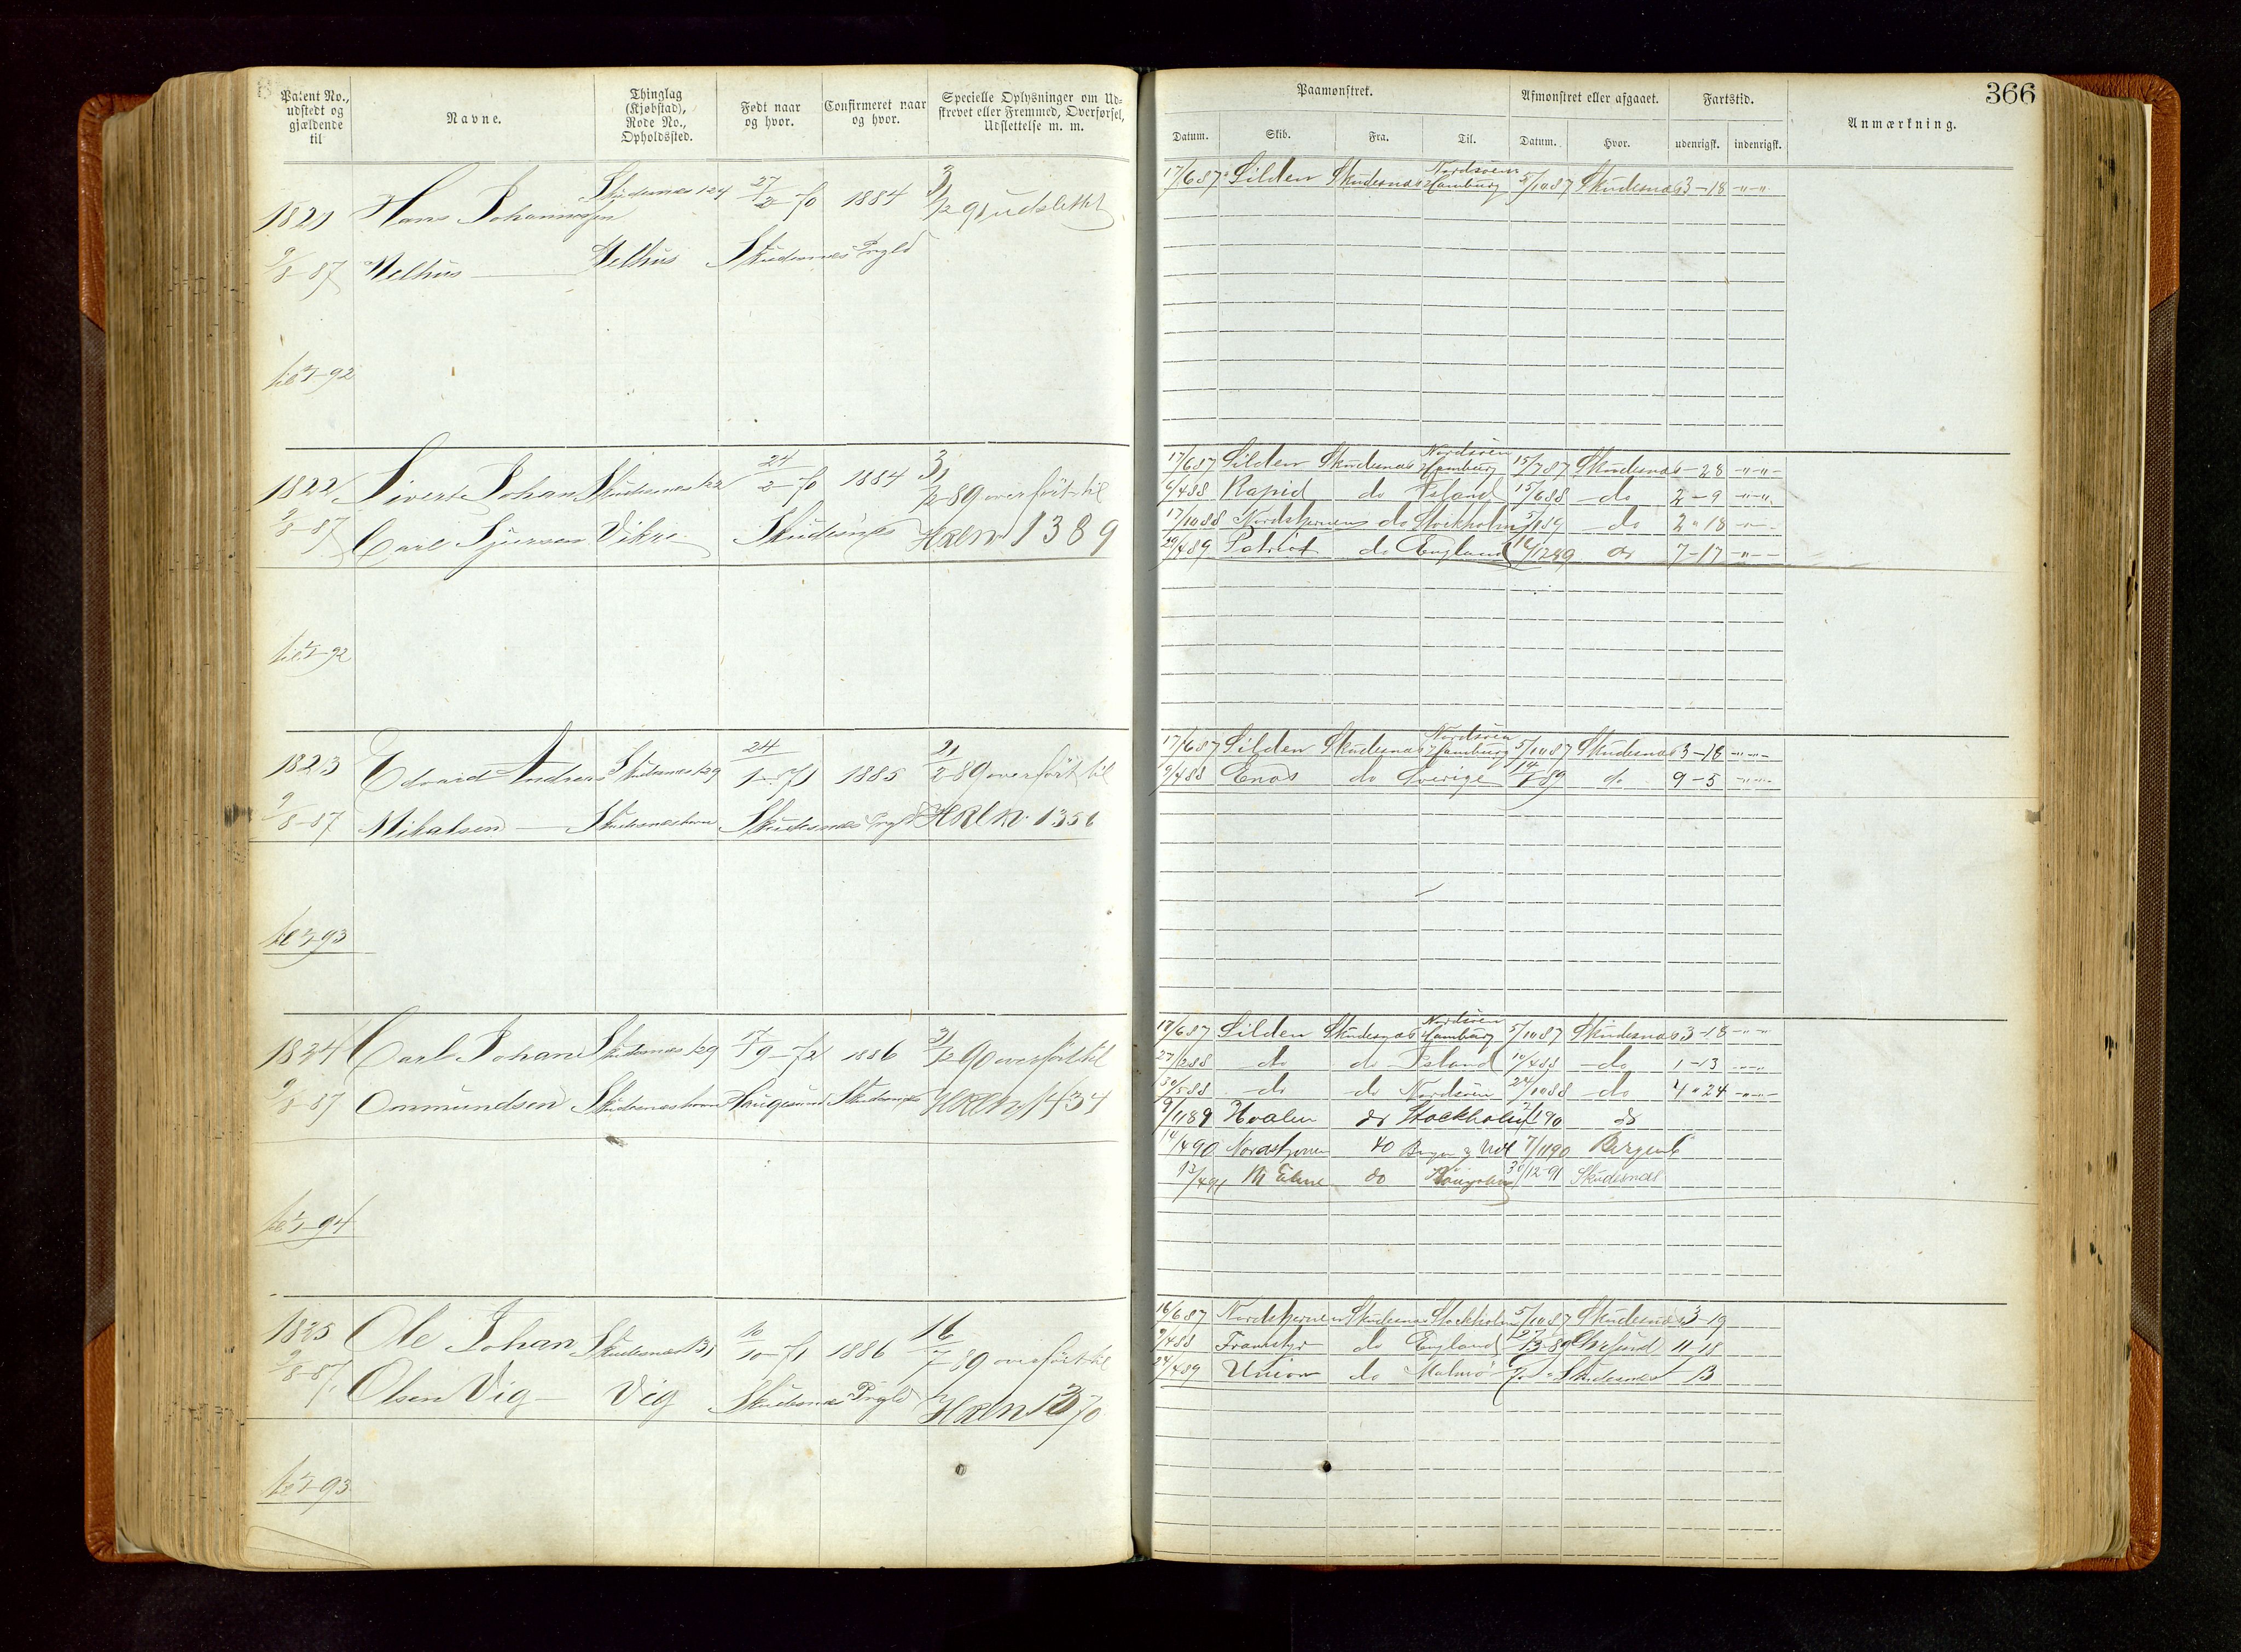 Patent No., udstedt og gjældende til
Navne.
Thinglag (Kjøbstad), Rode No., Opholdssted.
Født naar og hvor.
Confirmeret naar og hvor.
Specielle Oplysninger om Udskrevet eller Fremmed, Overførsel, Udslettelse m. m.
Paamønstret.
Afmønstret eller afgaaet.
Fartstid.
Anmærkning.
366
Datum. Skib. Fra. Til. Datum. Hvor. udenrigsk. indenrigsk.
1821 Hans Johannessen Skudesnes 124 27/2-70 1884 3/12 91 udslettet
9/8-87 Melhus Melhus Skudesnes Prgld
til 1/1-92
17/6 87 Silden Skudesnæs Nordsøen Hamburg 5/10 87 Skudesnæs 3-18 -"-"-
1822 Sivert Johan Skudesnes 122 24/2-70 1884 3/12-89 overført til
9/8-87 Carl Sjursen Vikre Skudesnes HRLN 1389
til 1/1-92
17/6 87 Silden Skudesnæs Nordsøen Hamburg 15/7 87 Skudesnæs -28 -"-"-
6/4 88 Rapid do Island 15/6 88 do 2-9 -"-"-
17/10 88 Nordstjernen do Stockholm 5/1 89 do 2"18
29/4 89 Patriot do England 16/12 89 do 7-17
1823 Edvard Andreas Skudesnes 129 24/1-71 1885 2/2-89 overført til
9/8-87 Mikalsen Skudesneshavn Skudesnes Prgld HRLN. 1356
til 1/1-93
17/6 87 Silden Skudesnæs Nordsøen Hamburg 5/10 87 Skudesnæs 3-18 -"-"-
9/4 88 Enos do Sverige 14/1 89 do 9-5 -"-"-
1824 Carl Johan Skudesnes 129 17/9-72 1886 3/12 90 overført til
9/8-87 Ommundsen Skudesneshavn Haugesund Skudesnes HRLN 1434
til 1/1-94
17/6 87 Silden Skudesnæs Nordsøen Hamburg 5/10 87 Skudesnæs 3-18 -"-"-
27/2 88 do do Island 10/4 88 do 1-13
30/5 88 do do Nordsøen 24/10 88 do 4"24
9/11 89 Hvalen do Stockholm 2/1 90 do
14/4 90 Nordstjernen do Bergen 7/11 90 Bergen
13/4 91 do 30/12-91 Skudesnæs
1825 Ole Johan Skudesnes 131 10/10-71 1886 16/7 89 overført til
9/8-87 Olsen Vig Vig Skudesnes Prgld HRLN 1370
til 1/1-93
16/6 87 Nordstjernen Skudesnæs Stockholm 5/10 87 Skudesnæs 3-19
9/4 88 do England 11-18
24/4 89 Union do Malmø Skudesnæs